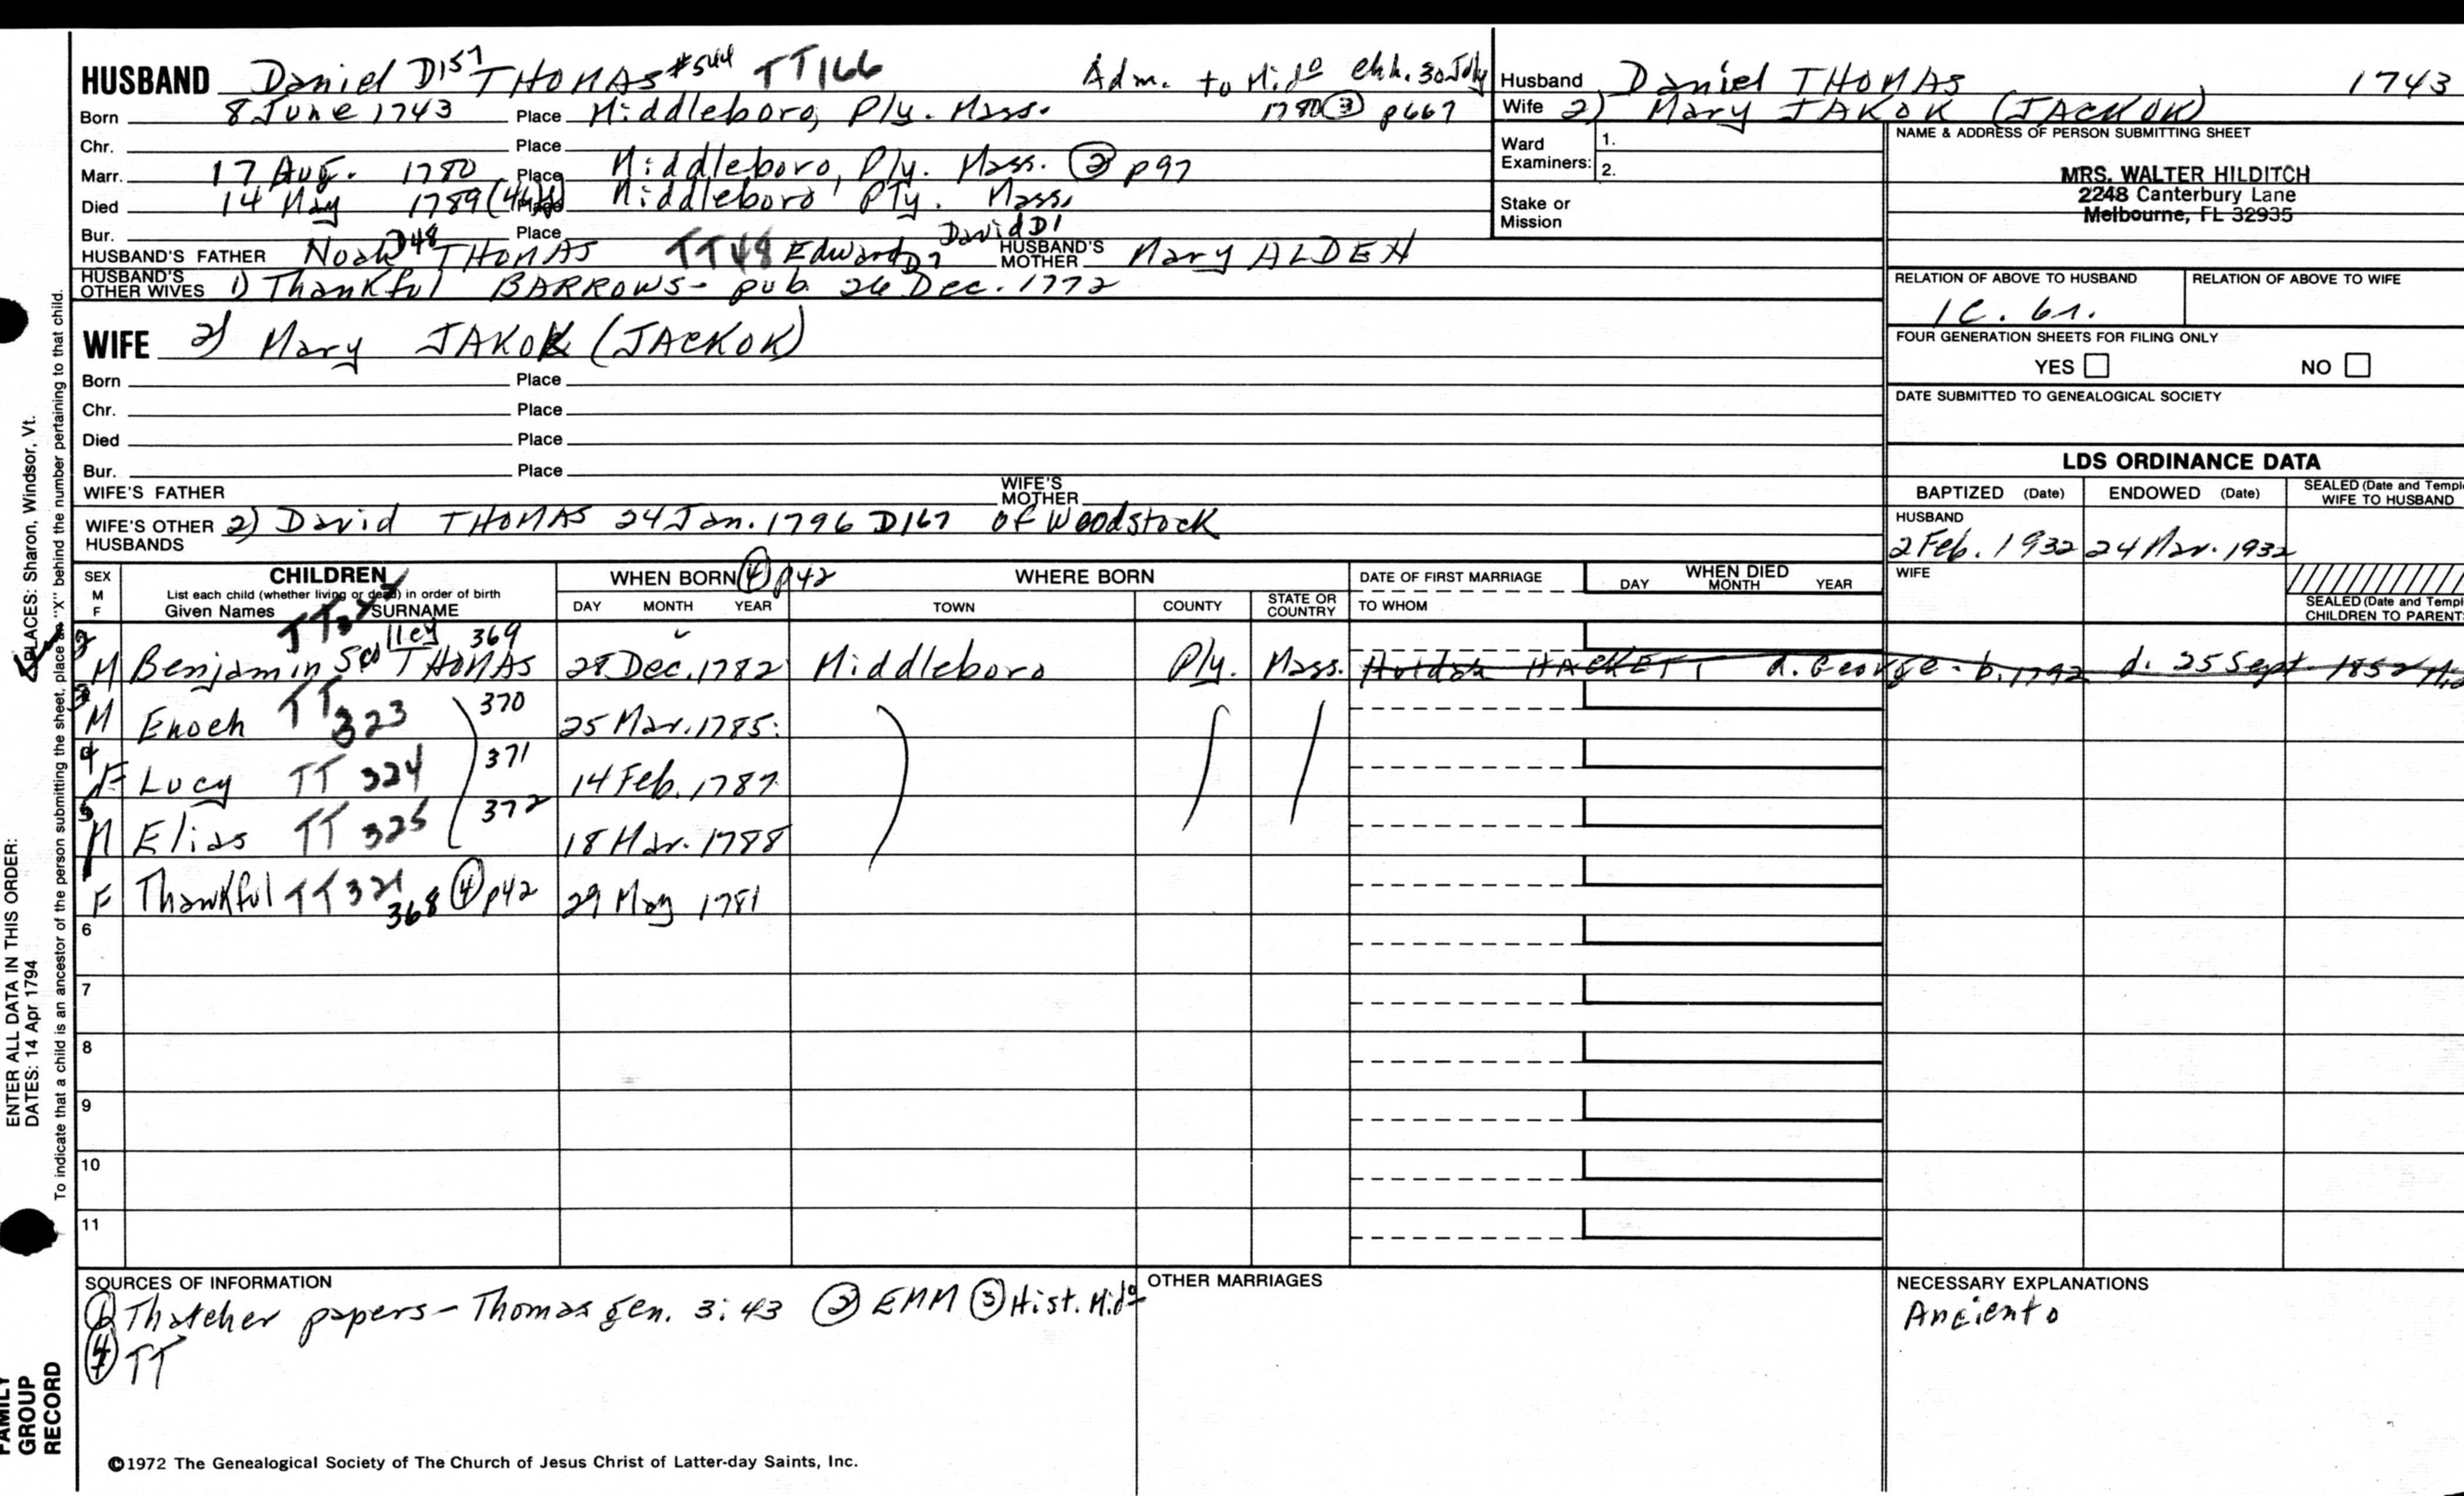 HUSBAND Daniel D157 THOMAS #544 TT166 Adm. to Mido chh. 30 July
Born 8 June 1743 Place Middleboro, Ply. Mass. 1780 ③ p667
Chr. Place
Marr. 17 Aug. 1780 Place Middleboro, Ply. Mass. ② p97
Died 14 May 1789 Place Middleboro' Ply. Mass.
Bur. Place
HUSBAND'S FATHER Noah D48 THOMAS TT48 Edward D7 David D1 HUSBAND'S MOTHER Mary ALDEN
HUSBAND'S OTHER WIVES 1) Thankful BARROWS - pub. 26 Dec. 1772
WIFE 2) Mary JAKOK (JACKOK)
Born Place
Chr. Place
Died Place
Bur. Place
WIFE'S FATHER WIFE'S MOTHER
WIFE'S OTHER HUSBANDS 2) David THOMAS 24 Jan. 1796 D167 of Woodstock
Husband Daniel THOMAS 1743
Wife 2) Mary JAKOK (JACKOK)
Ward Examiners: 1.
2.
Stake or Mission
NAME & ADDRESS OF PERSON SUBMITTING SHEET
MRS. WALTER HILDITCH
2248 Canterbury Lane
Melbourne, FL 32935
RELATION OF ABOVE TO HUSBAND RELATION OF ABOVE TO WIFE
1C. 6r.
FOUR GENERATION SHEETS FOR FILING ONLY
YES NO
DATE SUBMITTED TO GENEALOGICAL SOCIETY
LDS ORDINANCE DATA
BAPTIZED (Date) ENDOWED (Date) SEALED (Date and Templ
WIFE TO HUSBAND
HUSBAND
2 Feb. 1932 24 Mar. 1932
WIFE
SEALED (Date and Templ
CHILDREN TO PARENT
SEX M F CHILDREN WHEN BORN ④ p42 WHERE BORN DATE OF FIRST MARRIAGE WHEN DIED
List each child (whether living or dead) in order of birth
Given Names SURNAME DAY MONTH YEAR TOWN COUNTY STATE OR COUNTRY TO WHOM DAY MONTH YEAR
2 M Benjamin Scolley THOMAS 369 28 Dec. 1782 Middleboro Ply. Mass. HACKETT d. George - b. 1792 d. 25 Sept. 1852
3 M Enoch TT 323 370 25 Mar. 1785
4 F Lucy TT 324 371 14 Feb. 1787
5 M Elias TT 325 372 18 Mar. 1788
1 F Thankful TT 321 368 ④ p42 29 May 1781
6
7
8
9
10
11
SOURCES OF INFORMATION
① Thatcher papers - Thomas gen. 3:43 ② EMM ③ Hist. Mido
④ TT
OTHER MARRIAGES
NECESSARY EXPLANATIONS
Anciento
©1972 The Genealogical Society of The Church of Jesus Christ of Latter-day Saints, Inc.
ENTER ALL DATA IN THIS ORDER:
DATES: 14 Apr 1794
PLACES: Sharon, Windsor, Vt.
To indicate that a child is an ancestor of the person submitting the sheet, place an "X" behind the number pertaining to that child.
FAMILY
GROUP
RECORD